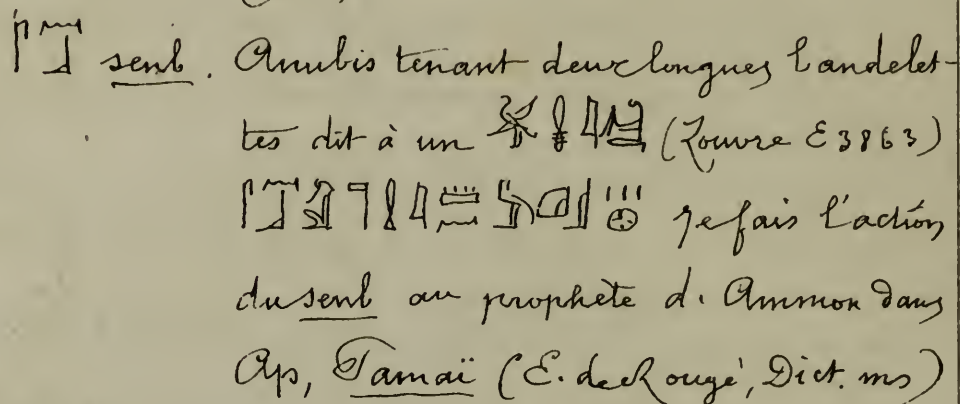 𓋴𓈖𓃀 senb. Anubis tenant deux longues bandelet-
tes dit à un (Louvre E 3863)
Je fais l'action
du senb au prophète d'Ammon dans
Ap, Tamaï (E. de Rougé, Dict. ms)